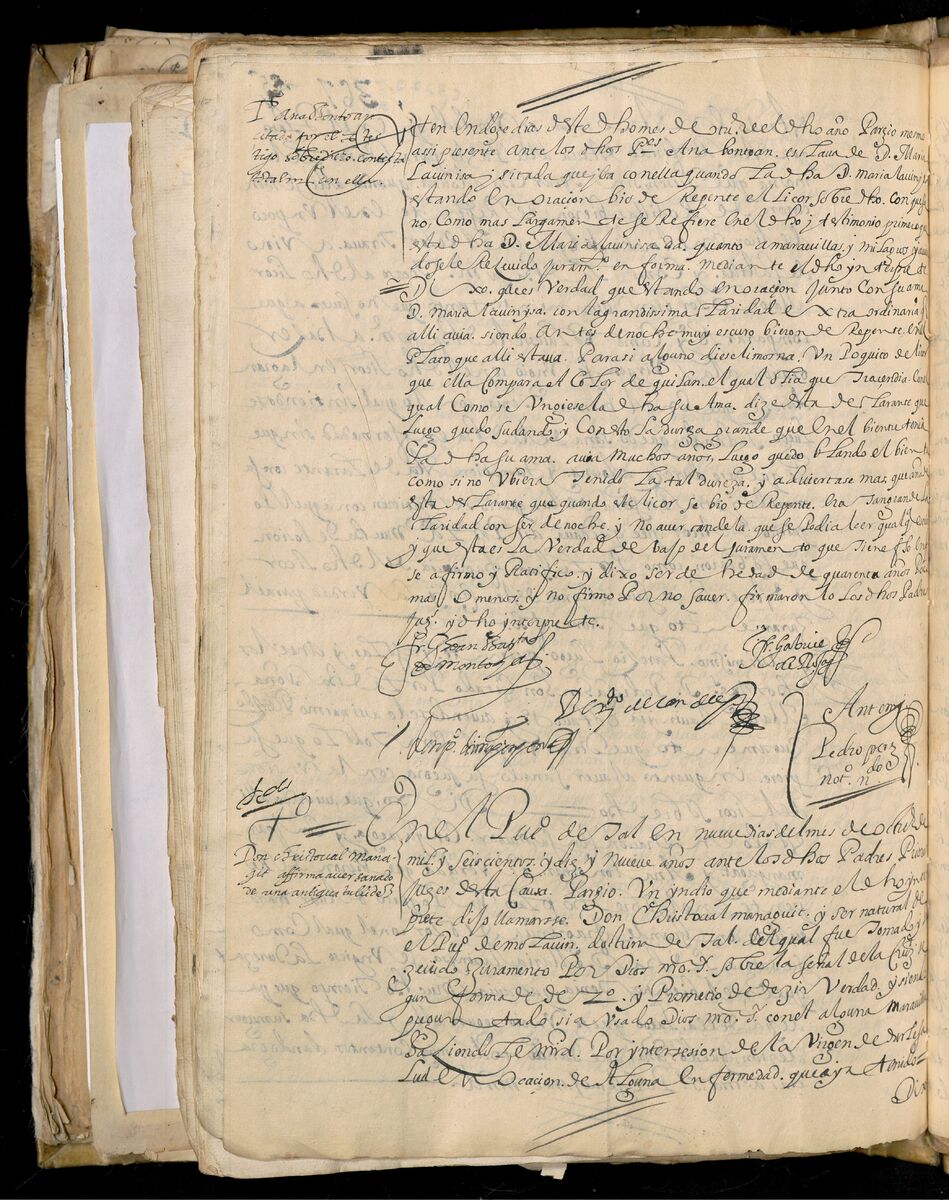 Ana bontoan
citada por el
tigo sobredicho. contesta
con ella
Iten En doze dias deste dho mes de otu.e el dho año Parezio mesmo
assi presente ante los dhos P.es Ana bontoan. esclaua de D. Maria
Lauinisa y sitada que yba con ella quando La dha D. maria lauinysa
estando En oracion bio de Repente el Licor sobredho. con que se
no, Como mas Largamente se Refiere en el dho y testimonio primero que
esta dha D. Maria lauinisa da. quanto a marauillas, y milagros y auien
dosele Resceuido juram.to en forma. mediante el dho ynterprete
D Xo. que es Verdad que estando en oracion Junto Con su ama
D. maria lauinysa. con la grandissima Claridad extraordinaria q
alli auia. siendo Antes de noche muy escuro bieron de Repente. en el
Plato que alli estaua. Para si alguno diese limosna. Un Poquito de licor
que ella Compara el Color de quilan. el qual olia que Trazendia. Con el
qual Como se Vngiese la dha su Ama. dize esta declarante que
Luego quedo sudando, y Con esto La dureza grande que En el bientre tenia
La dha su ama. auia muchos años, Luego quedo blando el bientre
como si no Vbiera Tenido La tal dureza. y aduiertase mas, que añade
esta declarante que quando este licor se bio de Repente. Era Tan grande la
Claridad con ser de noche. y no auer candela, que se Podia leer qualq.
y que esta es La Verdad de baxo del Juramento que Tiene fho En q
se afirmo y Ratifico. y dixo ser de hedad de quarenta años Poco
mas O menos. y no firmo Por no sauer. firmaron lo Los dhos Padres
Juz. y dho ynterprete.
fr. Juan Bap.ta
de Montoya
fr. Gabriel
Ante my
Pedro perez
Not.o n.do
Don christoual Mana
guit affirma auer sanado
de una antigua tullidez
En el Pu.o de Tal en nueue dias del mes de octubre de
mil. y seiscientos. y diez y Nueue años ante los dhos Padres, Priores
Juezes desta Causa. Parezio. Un yndio que mediante el dho ynter
prete dixo llamarse. Don Christoual managuit. y ser natural de
el Pu.o de molauin. doctrina de Tal. del qual fue Tomado y re
zeuido Juramento Por Dios nro. S.r sobre la señal de la Cruz se
gun forma de dr.o. y Prometio de dezir Verdad. y siendo
preguntado si a Vsado Dios nro. S.r con el alguna Marauilla
haziendo Le mrd. Por yntersesion de la Virgen de dar le sa
lud En Ocacion. de Alguna Enfermedad. que aya tenido
Dixo